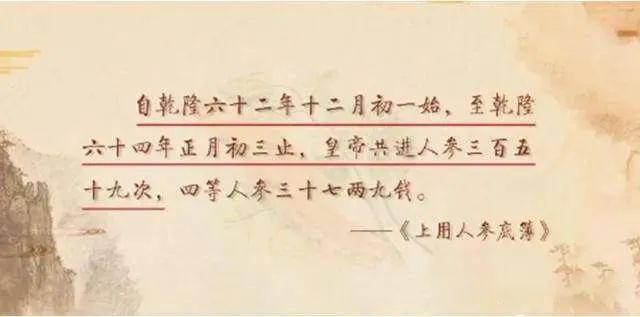 自乾隆六十二年十二月初一始，至乾隆
六十四年正月初三止，皇帝共进人参三百五
十九次，四等人参三十七两九钱。
——《上用人参底簿》